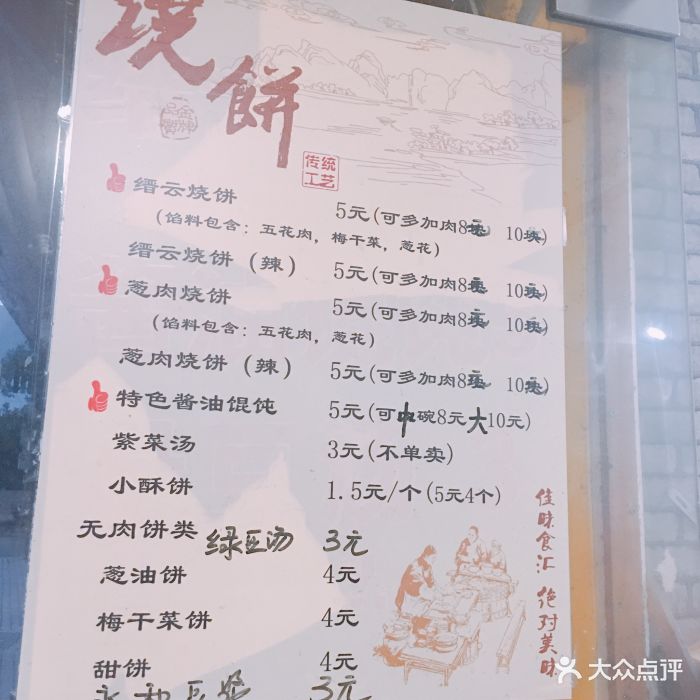 烧
餅
传统
工艺
缙云烧饼 5元(可多加肉8元 10块)
(馅料包含：五花肉，梅干菜，葱花)
缙云烧饼(辣) 5元(可多加肉8元 10元)
葱肉烧饼 5元(可多加肉8元 10块)
(馅料包含：五花肉，葱花)
葱肉烧饼(辣) 5元(可多加肉8元 10元)
特色酱油馄饨 5元(可中碗8元大10元)
紫菜汤 3元(不单卖)
小酥饼 1.5元/个(5元4个)
无肉饼类 绿豆汤 3元
葱油饼 4元
梅干菜饼 4元
甜饼 4元
永和豆浆 3元
佳味食汇 绝对美味
大众点评